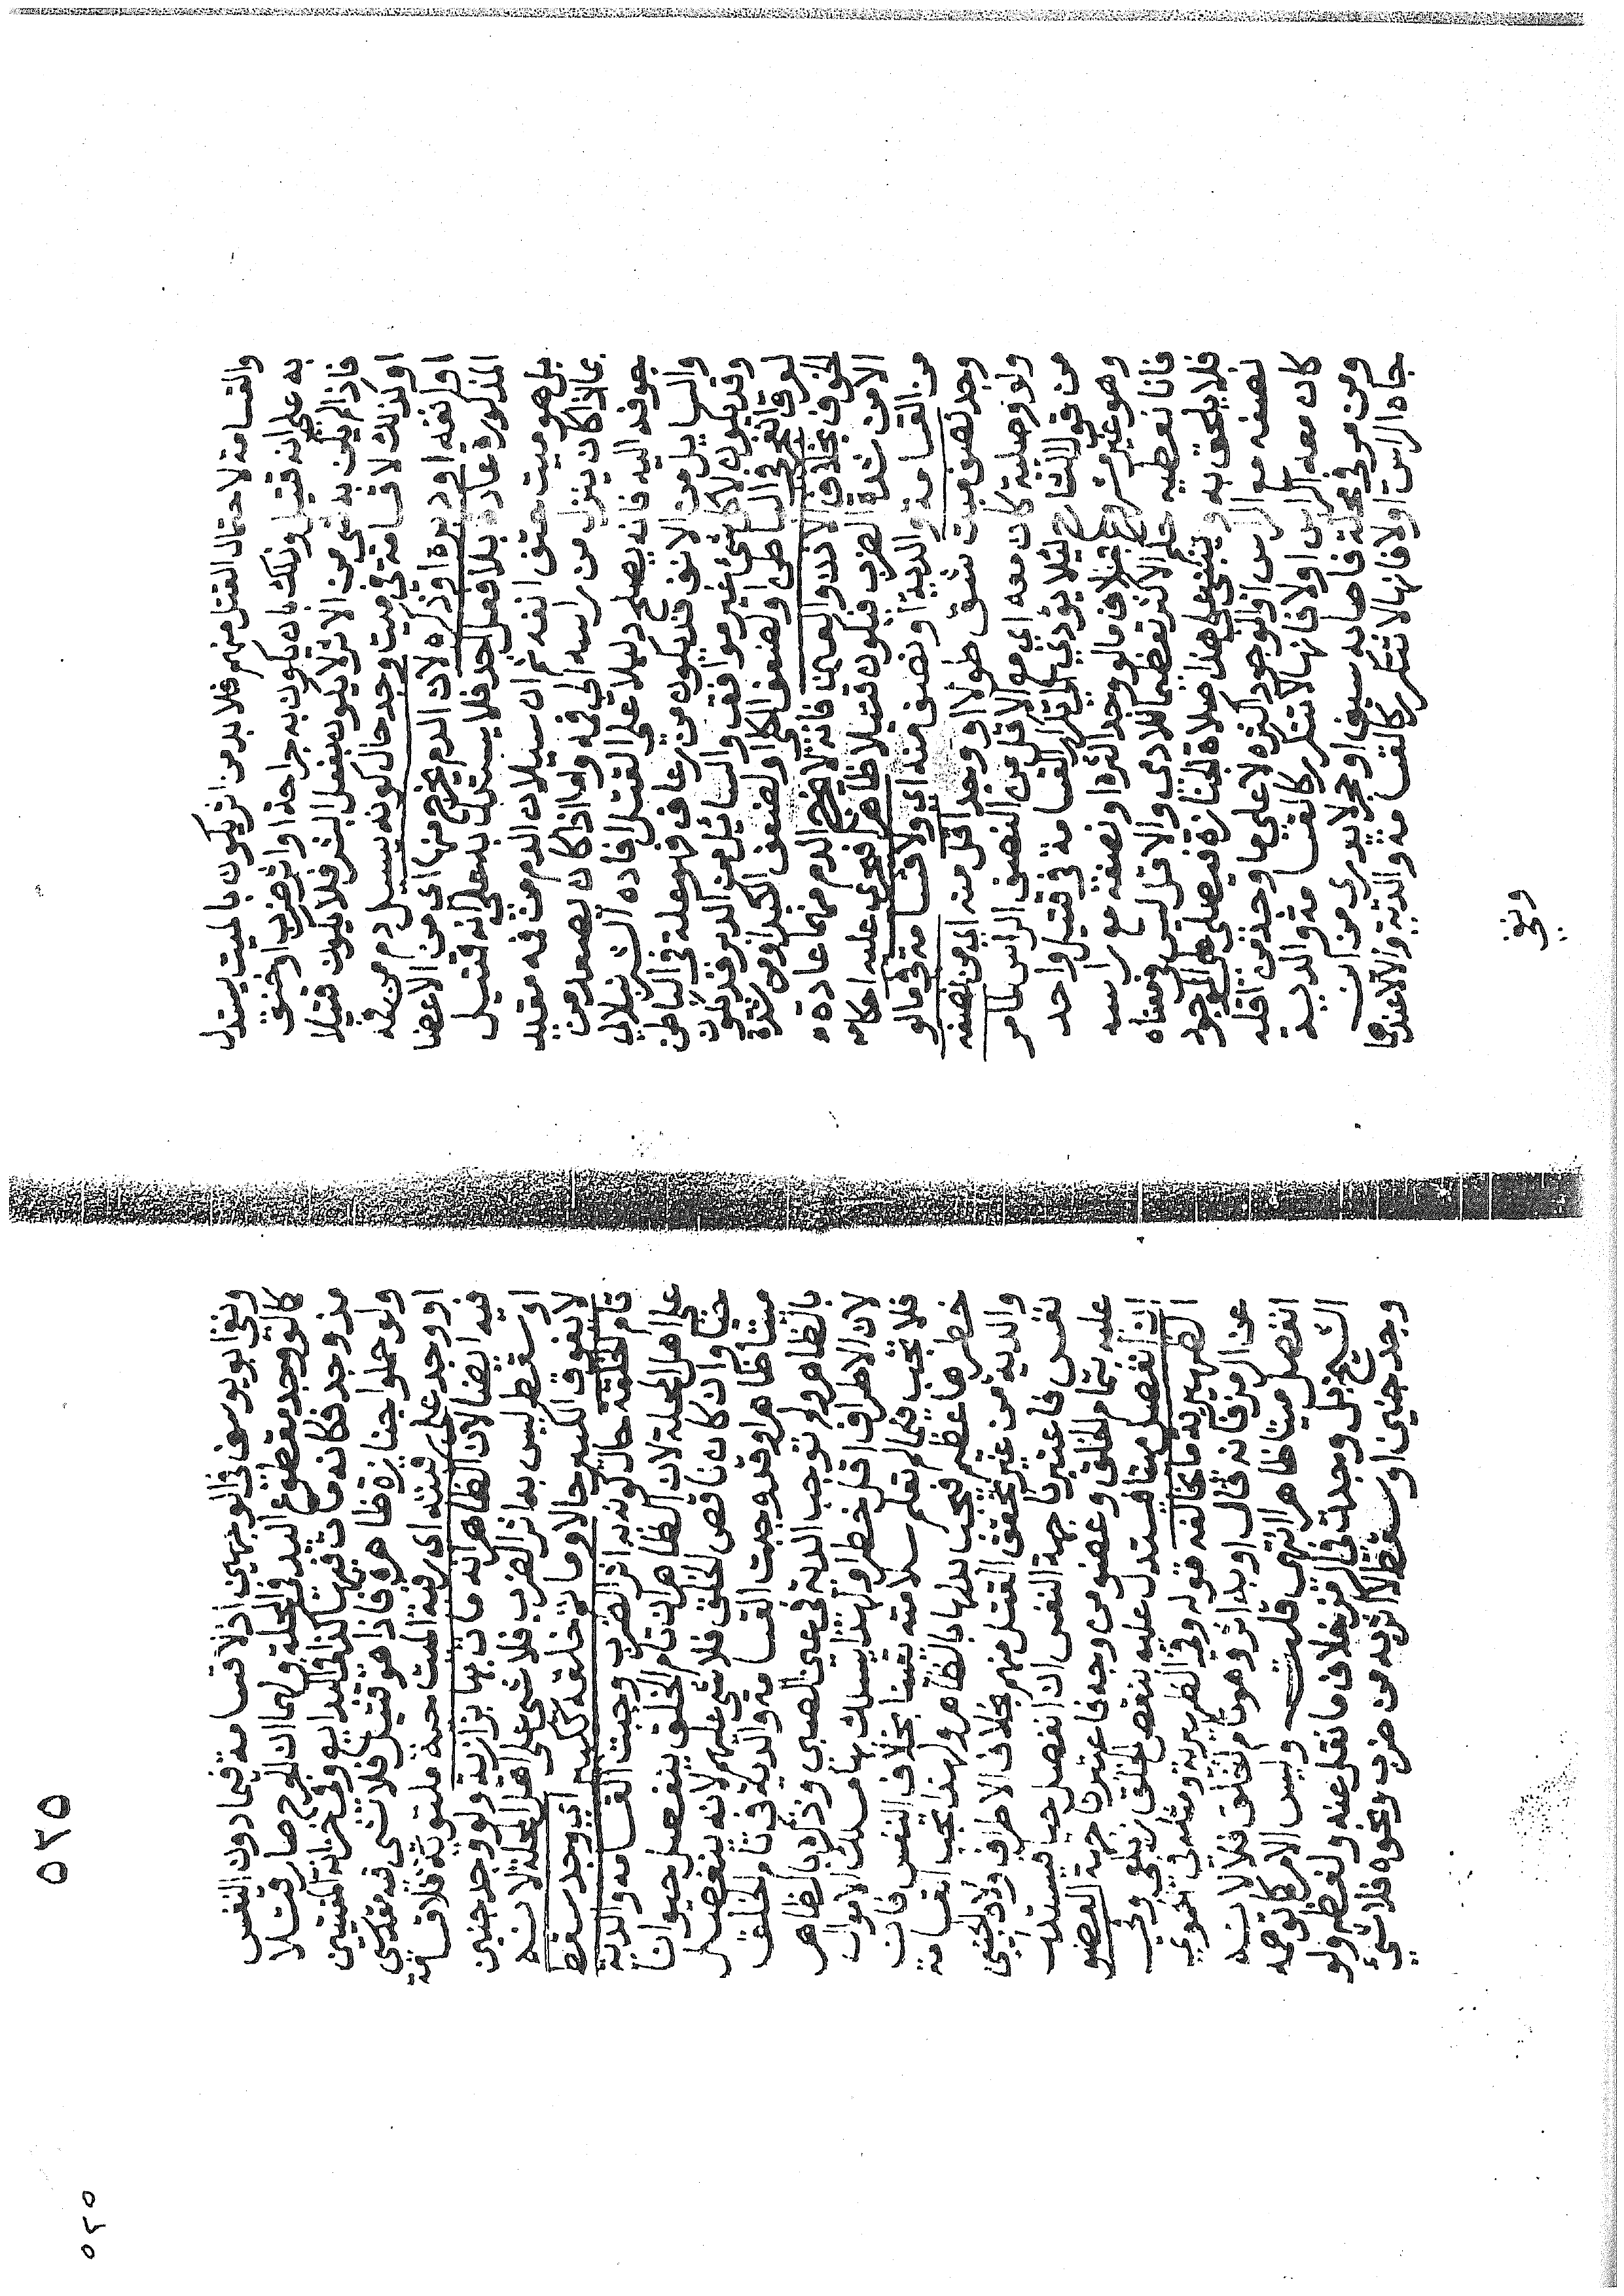 والقسامة لاحتمال القتل منهم فلا بد من اثر يكون بالميت يستدل
به على انه قتيل وذلك بان يكون به جراحة او اثر ضرب او خنق
فاذا لم يكن به شي من الاثر لا يكون بفعل البشر فلا يكون قتيلا
وكذلك لا قسامة في ميت وجد حال كونه يسيل دم من فمه
او انفه او دبره او ذكره لان الدم يخرج منها اي من الاعضا
المذكورة عادة بلا فعل احد فلا يستدل به على انه قتيل
بل هو ميت حتف انفه ثم ان سيلان الدم من فمه مقيد
بما اذا كان ينزل من راسه الى فمه واما اذا كان يصعد من
جوفه اليه فانه يصلح دليلا على القتل افاده الشرنبلالي
والسايل من الانف قد يكون من رعاف فهو علة في الباطن
وقد يكون لاكل شي غير موافق والسائل من الدبر قد يكون
لعرق انفجر في الباطن او لضعف الكلى او لضعف الكبد او من شدة
الخوف بخلاف الاذن والعين فانه لا يخرج الدم منهما عادة
الا من شدة الضرب فيكون قتيلا ظاهرا فيجري عليه احكامه
من القسامة والدية او نصف منه اي ولا قسامة في ما لو
وجد نصف ميت شق طولا او وجد اقل منه اي من نصفه
ولو وصلية كان معه اي مع الاقل من النصف الراس لما مر
من قول الشارح ليلا يؤدي الى تكرار القسامة في قتيل واحد
وهو غير مشروع بخلاف ما لو وجد اكثره او نصفه مع راسه
فانا نعطيه حكم الاكثر تعظيما للادمي والاقل ليس في معناه
فلا يلحق به ويبتنى على هذا صلاة الجنازة فيصلى على الموجود
نصفه مع الراس او الموجود اكثره لا على ما وجد من اقله
كان معه الراس او لا فانها لا تتكرر كالقسامة والدية
ومن مر في محلة فاصابه سيف او حجر لا يدرى من اين
جاه الراس او لا فانها لا تتكرر كالقسامة والدية والا عندهما
ونفى
ونفى ابو يوسف في الوجهين اذ لا قسامة فيما دون النفس
كالو وجد مقطوع اليد في المحلة ولهما ان الجرح صار قتلا
مذ وجد فكانه مات فيها كذا في البدايع وفي خزانة المفتيين
ولو حملوا جنازة ظاهرة فاذا هو قتيل فلا شي فيه مقدسي
او وجد على رقبته اي رقبة الميت حية ملتوية فلا قسامة
فيه ايضا لان الظاهر انه مات بها بزازية ولو وجد جنين
او سقط ليس به اثر الضرب فلا شي على اهل المحلة لانه
لا يفوق الكبير حالا وما تم خلقه ككبير اي وجد سقط
تام الخلقة حال كونه به اثر الضرب وجبت القسامة والدية
على اهل المحلة لان الظاهر ان تام الخلق ينفصل حيا
حيا وان كان ناقص الخلق فلا شي عليهم لانه ينفصل
ميتا ظاهرا وقد وجبت القسامة والدية في تام الخلق
بالظاهر ولم توجب الدية في عين الصبي وذكره بالظاهر
لان الاطراف اقل خطرا ولهذا يسلك بها مسلك الاموال
فلا تجب فيما لم تعلم سلامته يقينا بخلاف النفس فان
خطرها عظيم فتجب بدلها بالظاهر ولهذا تجب القسامة
والدية من غير تحقق القتل منهم بخلاف الاطراف ولان الجنين
نفس فاعتبرنا جهة النفس ان انفصل حيا فيستدل
عليه بتمام الخلق وعضو من وجه فاعتبرنا جهة العضو
ان انفصل ميتا فيستدل عليه بنقص الخلق زيلعي وفي
الظهيرية ما يخالفه قوله وفي الظهيرية ومثله في الحموي
عن الرمز فانه قال او به اثر وهو تام الخلق فلا لانه
انفصل ميتا ظاهرا انتهى قلت وليس الامر كما توهمه
الشيخ بل وجدت في الرمز خلاف ما نقل عنه ولفظه ولو
وجد جنين او سقط لا اثر به من ضرب ونحوه فلا شي
٥٢٥
٥٢٥